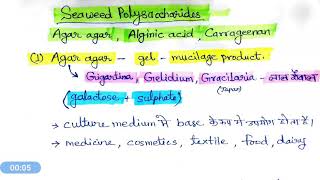 Seaweed Polysaccharides
Agar agar, Alginic acid, Carrageenan
(1) Agar agar – gel – mucilage product.
Grigartina, Gelidium, Gracilaria – लाल शैवाल
(Japan)
(galactose + sulphate)
→ culture medium में base के रूप में उपयोग होता है।
→ medicine, cosmetics, textile, food, dairy
00:05